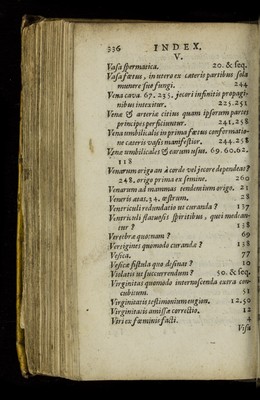 336 INDEX.
V.
Vasa spermatica. 20. & seq.
Vasa fœtus, in utero ex cateris partibus sola
munere suo fungi. 244
Vena cava. 67. 235. jecori infinitis propagi-
nibus intexitur. 225.251
Venæ & arteriæ citius quam ipsorum partes
principes perficiuntur. 241.258
Vena umbilicalis in prima fœtus conformatio-
ne cateris vasis manifestior. 244.258
Venæ umbilicales & earum usus. 69. 60.62.
118
Venarum origo an à corde vel jecore dependeat?
248. origo prima ex semine. 260
Venarum ad mammas tendentium origo. 23
Veneris æstas. 34. œstrum. 28
Ventriculi redundatio ut curanda? 137
Ventriculi flatuosis spiritibus, quei medean-
tur? 138
Verebræ quotnam? 69
Vertigines quomodo curandæ? 138
Vesica. 77
Vesicæ fistula quo desinat? 10
Violatis ut succurrendum? 50. & seq.
Virginitas quomodo internoscenda extra con-
cubinum. 51
Virginitatis testimonium engion. 12.50
Virginitatis amissæ correctio. 12
Viri ex fœminis facti. 4
Visa